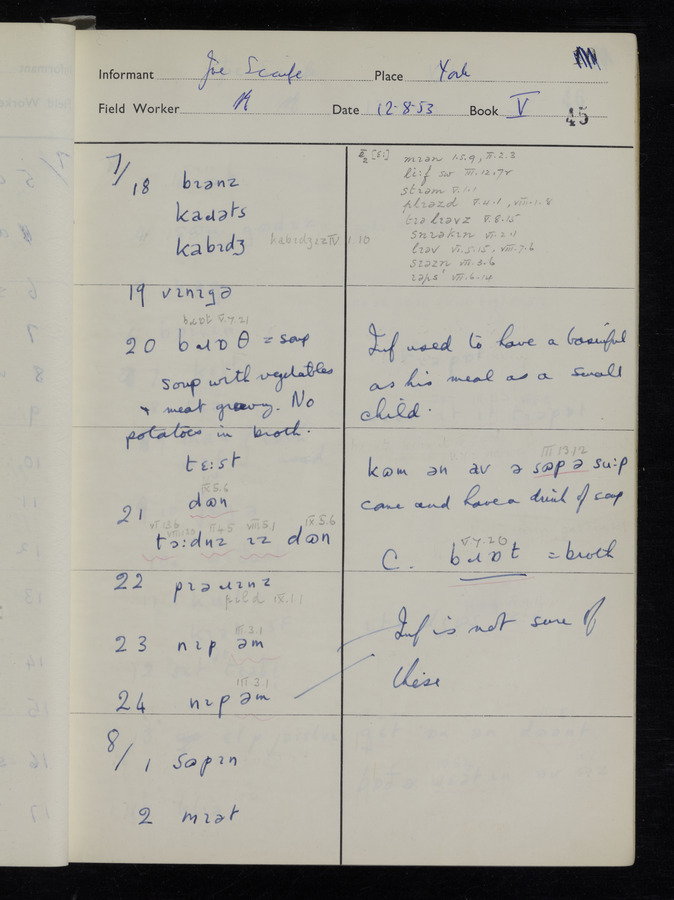 Informant Joe Scaife Place York
Field Worker Date 12-8-53 Book V
45
7/18 bɹənz
kaɹəts
kabɪdʒ kabɪdʒɪz IV.1.10
19 vɪnɪgə
bɹɒt V.7.21
20 bɹɒθ = soup
soup with vegetables
+ meat gravy. No
potatoes in broth.
tɛ:st
IX.5.6
21 dɷn
VI.13.6 VIII.1.20 II.4.5 VIII.5.1 IX.5.6
tə:dnz ɪz dɷn
22
IX.1.1
III.3.1
23 nɪp əm
III.3.1
24 nɪp əm
8/1 sɷpɪn
2 mɪət
[ɛɪ] mɪən I.5.9, II.2.3
III.12.7r
stɪəm V.1.1
V.4.1, VIII.1.8
V.8.15
snɪəkɪn VI.2.1
VI.5.15, VIII.7.6
VII.3.6
VII.6.14
Inf used to have a basinful
as his meal as a small
child.
III 13.12
kɷm ən av ə sɷp ə su:p
come and have a drink of soup
V.7.20
C. bɹɒt = broth
Inf is not sure of
these